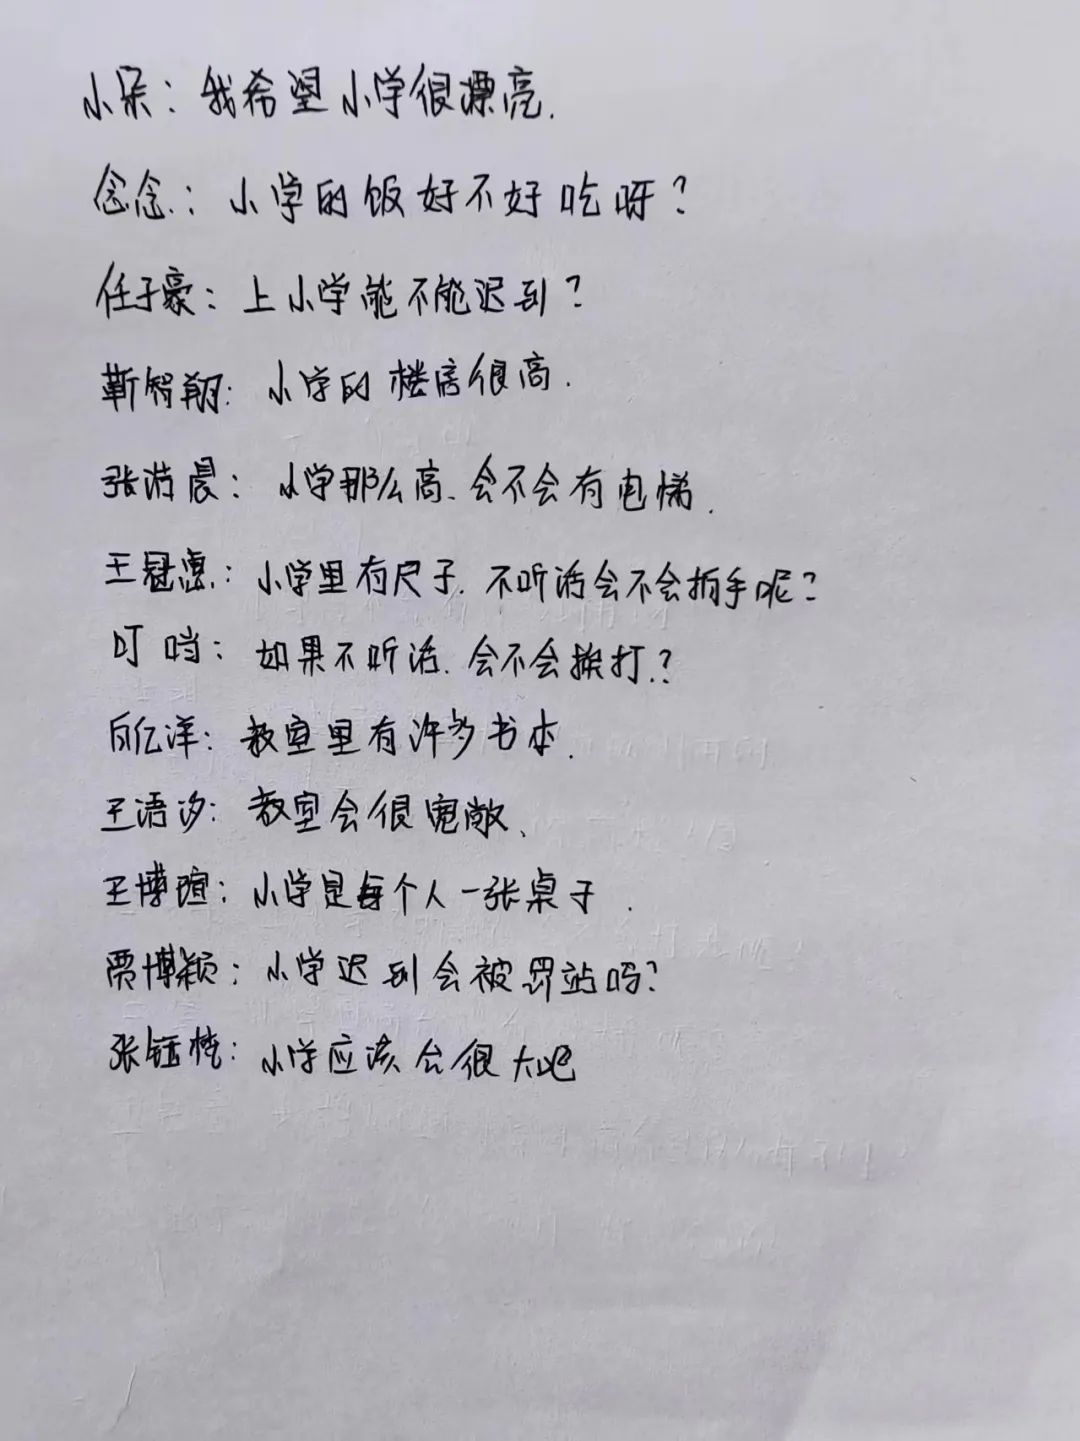 小朵：我希望小学很漂亮.
念念：小学的饭好不好吃呀？
任子豪：上小学能不能迟到？
靳智翔：小学的楼房很高.
张洧晨：小学那么高、会不会有电梯.
王冠惠：小学里有尺子.不听话会不会拍手呢？
叮 铛：如果不听话.会不会挨打.？
白亿洋：教室里有许多书本.
王语汐：教室会很宽敞、
王博瑄：小学是每个人一张桌子.
贾博颖：小学迟到会被罚站吗？
张钰桡：小学应该会很大吧